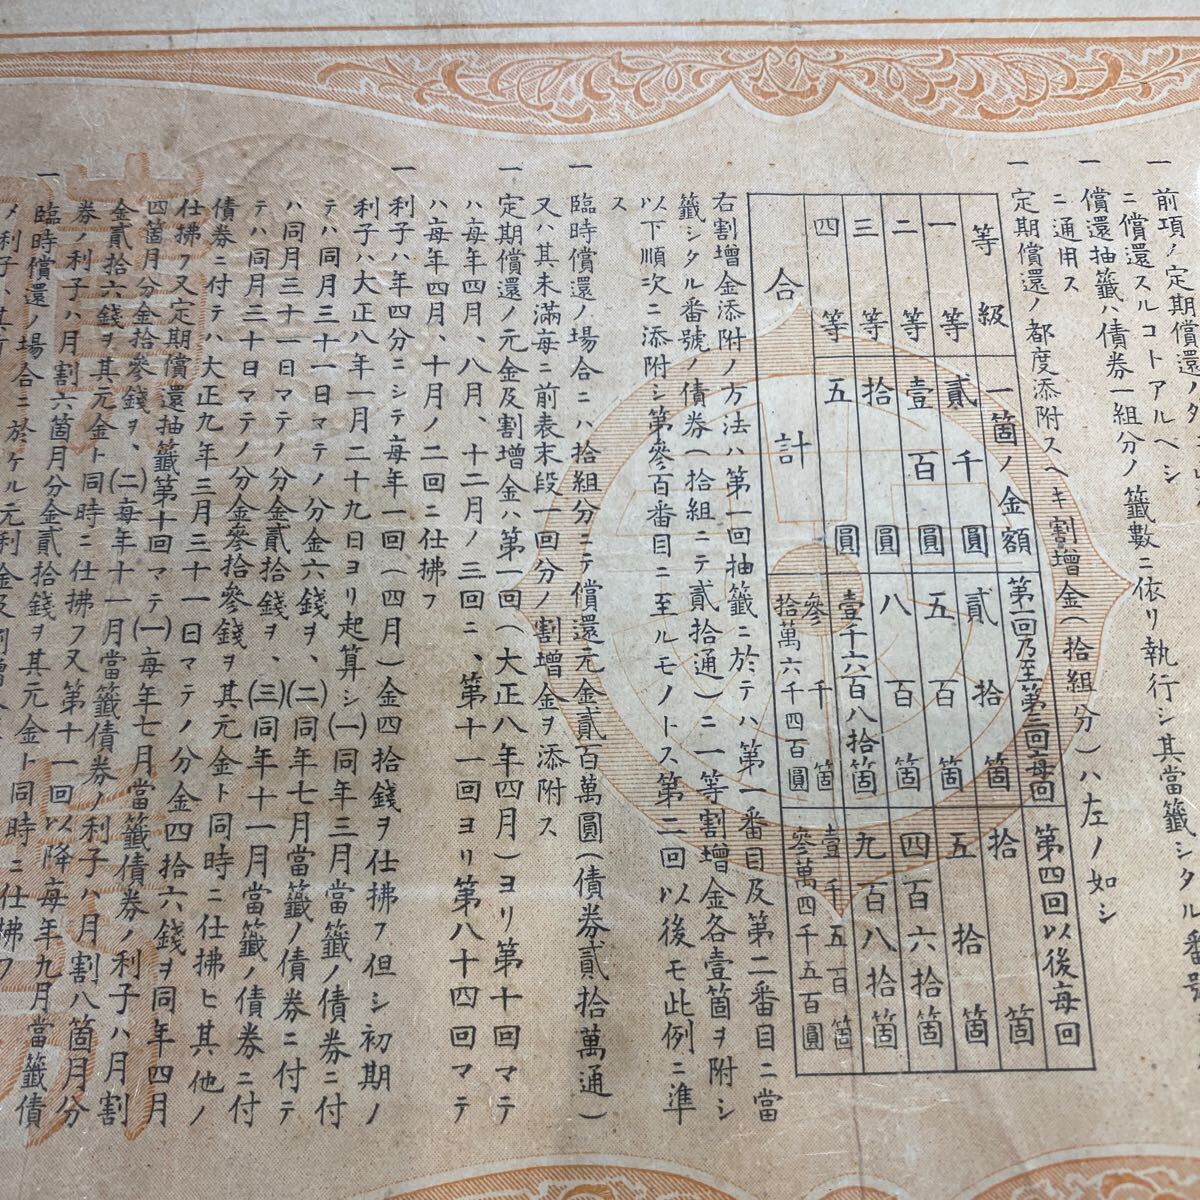 一 前項ノ定期償還ノ
ニ償還スルコトアルヘシ
一 償還抽籤ハ債券一組分ノ籤數ニ依リ執行シ其當籤シタル番號
ニ通用ス
一 定期償還ノ都度添附スヘキ割增金(拾組分)ハ左ノ如シ
等級 一箇ノ金額 第一回乃至第三回每回 第四回以後每回
一等 貳千圓 貳拾箇 拾箇
二等 壹百圓 五百箇 五拾箇
三等 拾圓 八百箇 四百六拾箇
四等 五圓 壹千六百八拾箇 九百八拾箇
合計 參千箇 壹千五百箇
拾萬六千四百圓 參萬四千五百圓
右割增金添附ノ方法ハ第一回抽籤ニ於テハ第一番目及第二番目ニ當
籤シタル番號ノ債券(拾組ニテ貳拾通)ニ一等割增金各壹箇ヲ附シ
以下順次ニ添附シ第參百番目ニ至ルモノトス第二回以後モ此例ニ準
ス
一 臨時償還ノ場合ニハ拾組分ニテ償還元金貳百萬圓(債券貳拾萬通)
又ハ其未滿每ニ前表末段一回分ノ割增金ヲ添附ス
一 定期償還ノ元金及割增金ハ第一回(大正八年四月)ヨリ第十回マテ
ハ每年四月、八月、十二月ノ三回ニ、第十一回ヨリ第八十四回マテ
ハ每年四月、十月ノ二回ニ仕拂フ
一 利子ハ年四分ニシテ每年一回(四月)金四拾錢ヲ仕拂フ但シ初期ノ
利子ハ大正八年一月二十九日ヨリ起算シ(一)同年三月當籤ノ債券ニ付
テハ同月三十一日マテノ分金六錢ヲ、(二)同年七月當籤ノ債券ニ付テ
ハ同月三十一日マテノ分金貳拾錢ヲ、(三)同年十一月當籤ノ債券ニ付
テハ同月三十日マテノ分金參拾參錢ヲ其元金ト同時ニ仕拂ヒ其他ノ
債券ニ付テハ大正九年三月三十一日マテノ分金四拾六錢ヲ同年四月
仕拂フ又定期償還抽籤第十回マテ(一)每年七月當籤債券ノ利子ハ月割
四箇月分金拾參錢ヲ、(二)每年十一月當籤債券ノ利子ハ月割八箇月分
金貳拾六錢ヲ其元金ト同時ニ仕拂フ又第十一回以降每年九月當籤債
券ノ利子ハ月割六箇月分金貳拾錢ヲ其元金ト同時ニ仕拂フ
一 臨時償還ノ場合ニ於ケル元利金及割增